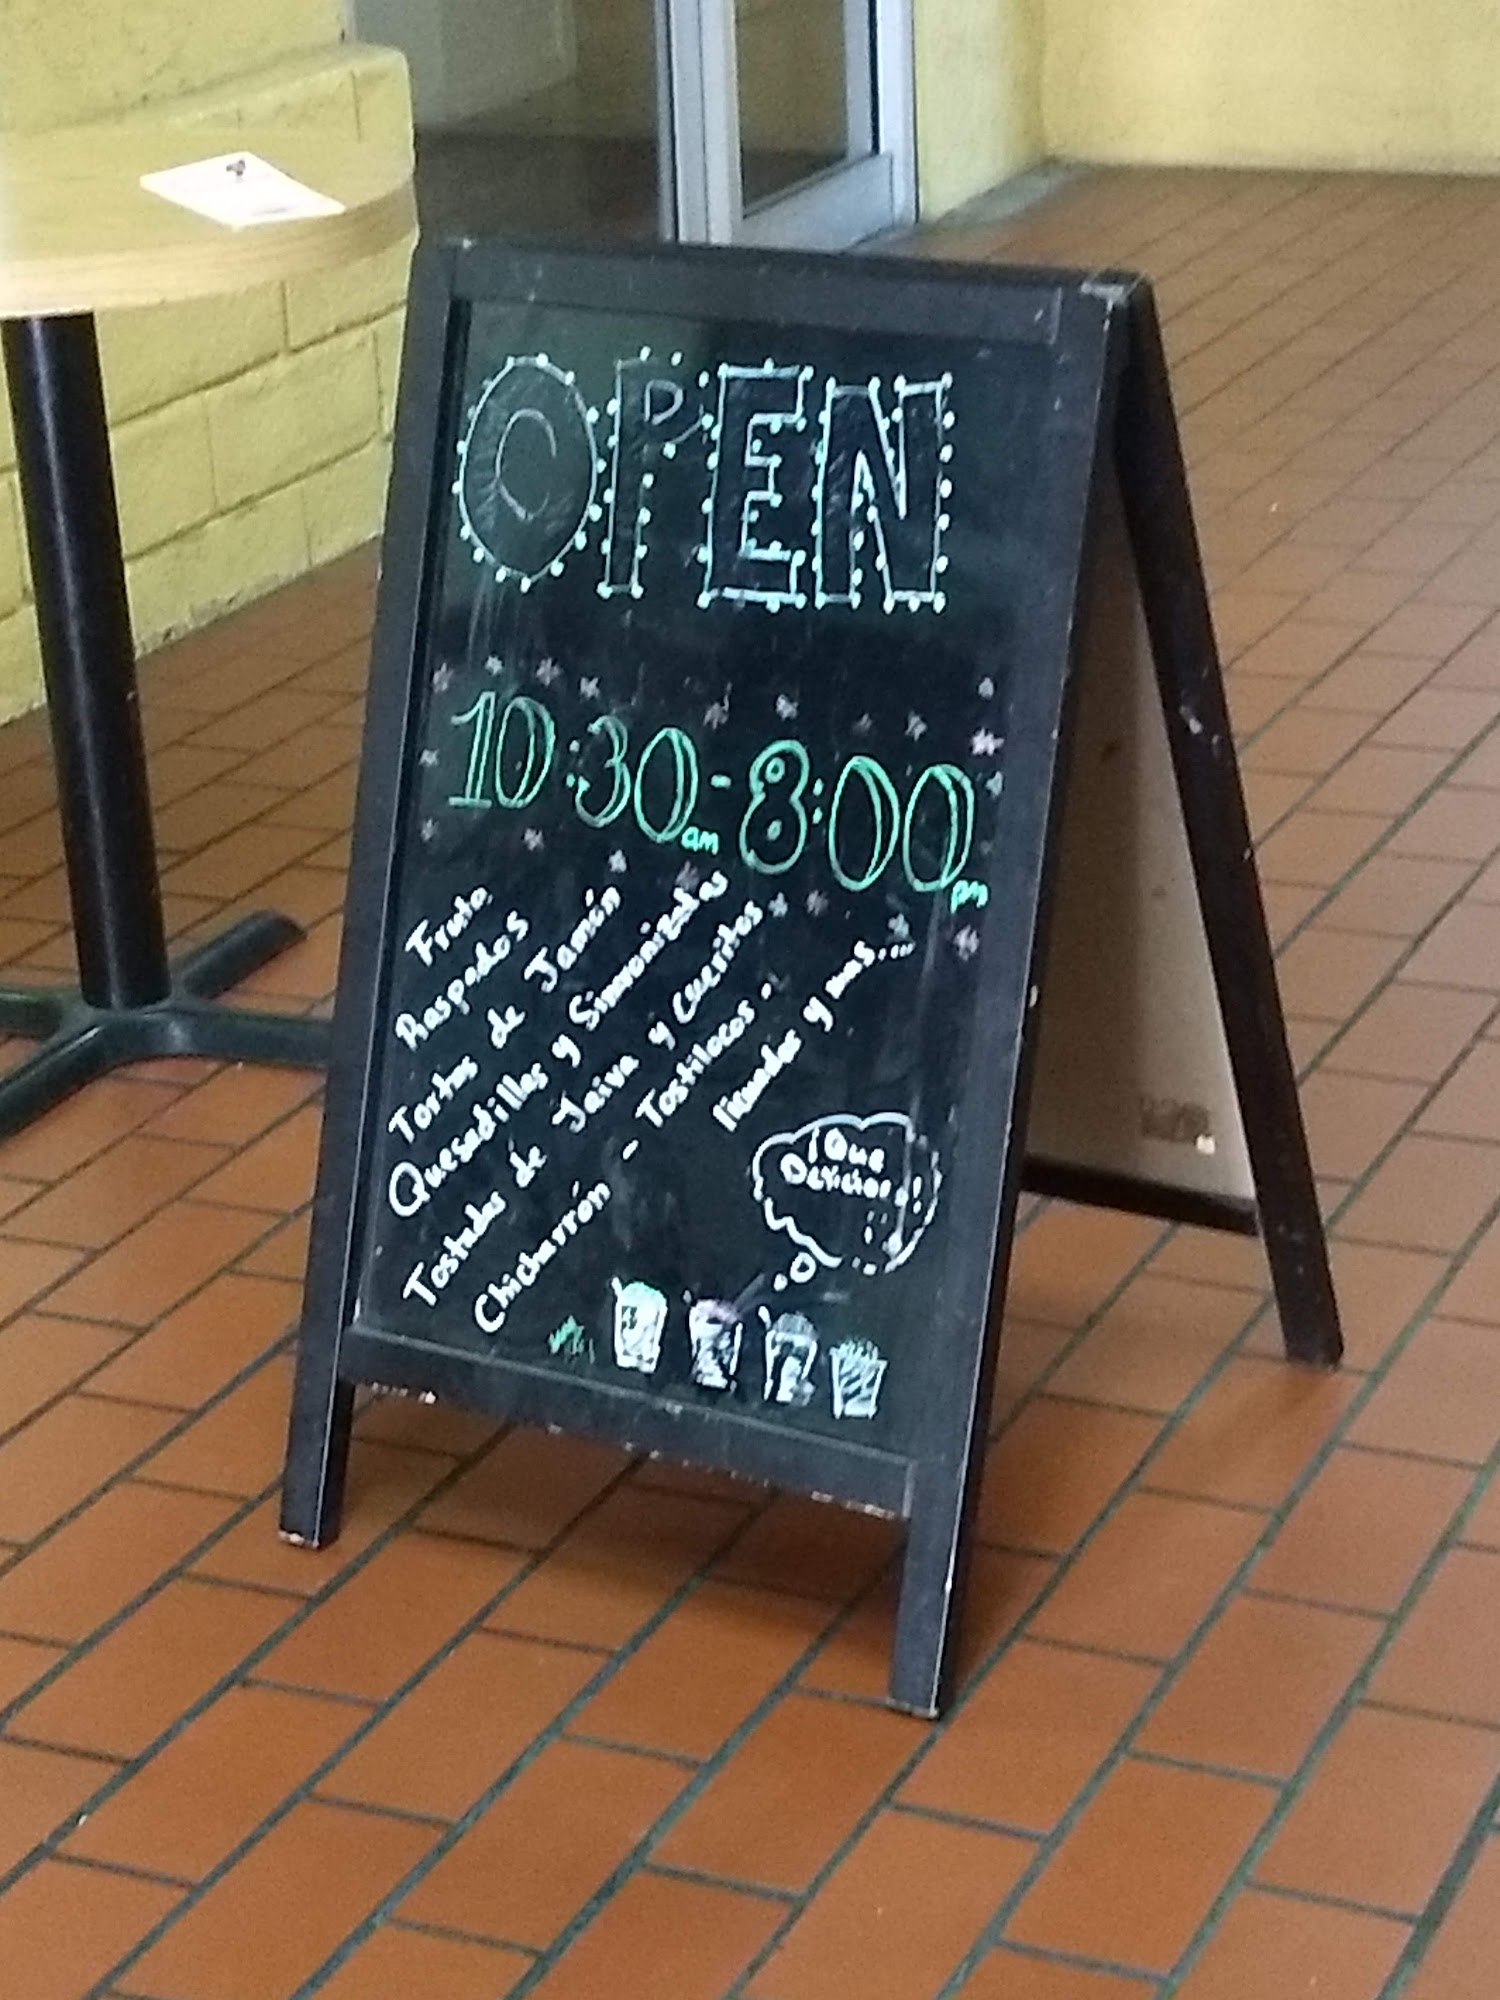 OPEN
10:30am - 8:00pm
Fruta.
Raspados
Tortas de Jamón
Quesadillas y Sincronizadas
Tostadas de Jaiva y Cueritos.
Chicharrón - Tostilocos.
licuados y mas....
¡Que
Delicioso!